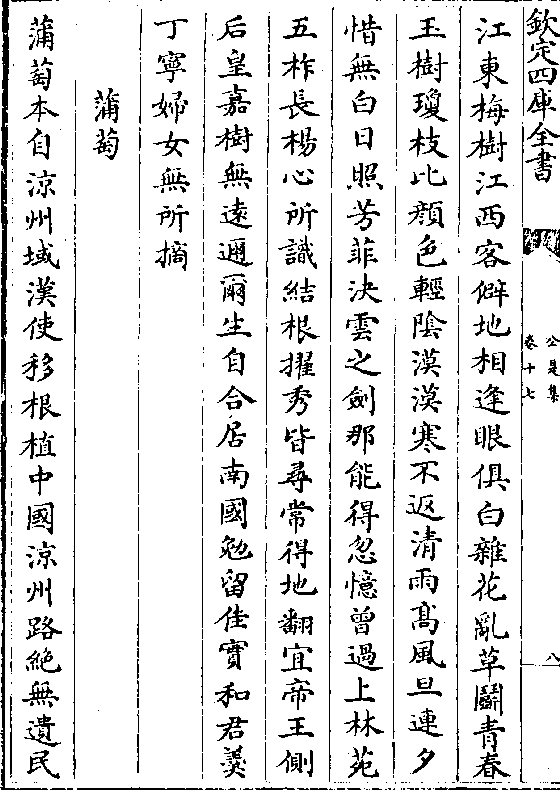 欽定四庫全書
公是集
卷十七
八
江東梅樹江西客僻地相逢眼俱白雜花亂草鬭青春
玉樹瓊枝比顔色輕陰漠漠寒不返清雨髙風旦連夕
惜無白日照芳菲決雲之劍那能得忽憶曾過上林苑
五柞長楊心所識結根擢秀皆尋常得地翻宜帝王側
后皇嘉樹無逺邇爾生自合居南國勉留佳實和君羮
丁寧婦女無所摘
蒲萄
蒲萄本自涼州域漢使移根植中國涼州路絶無遺民